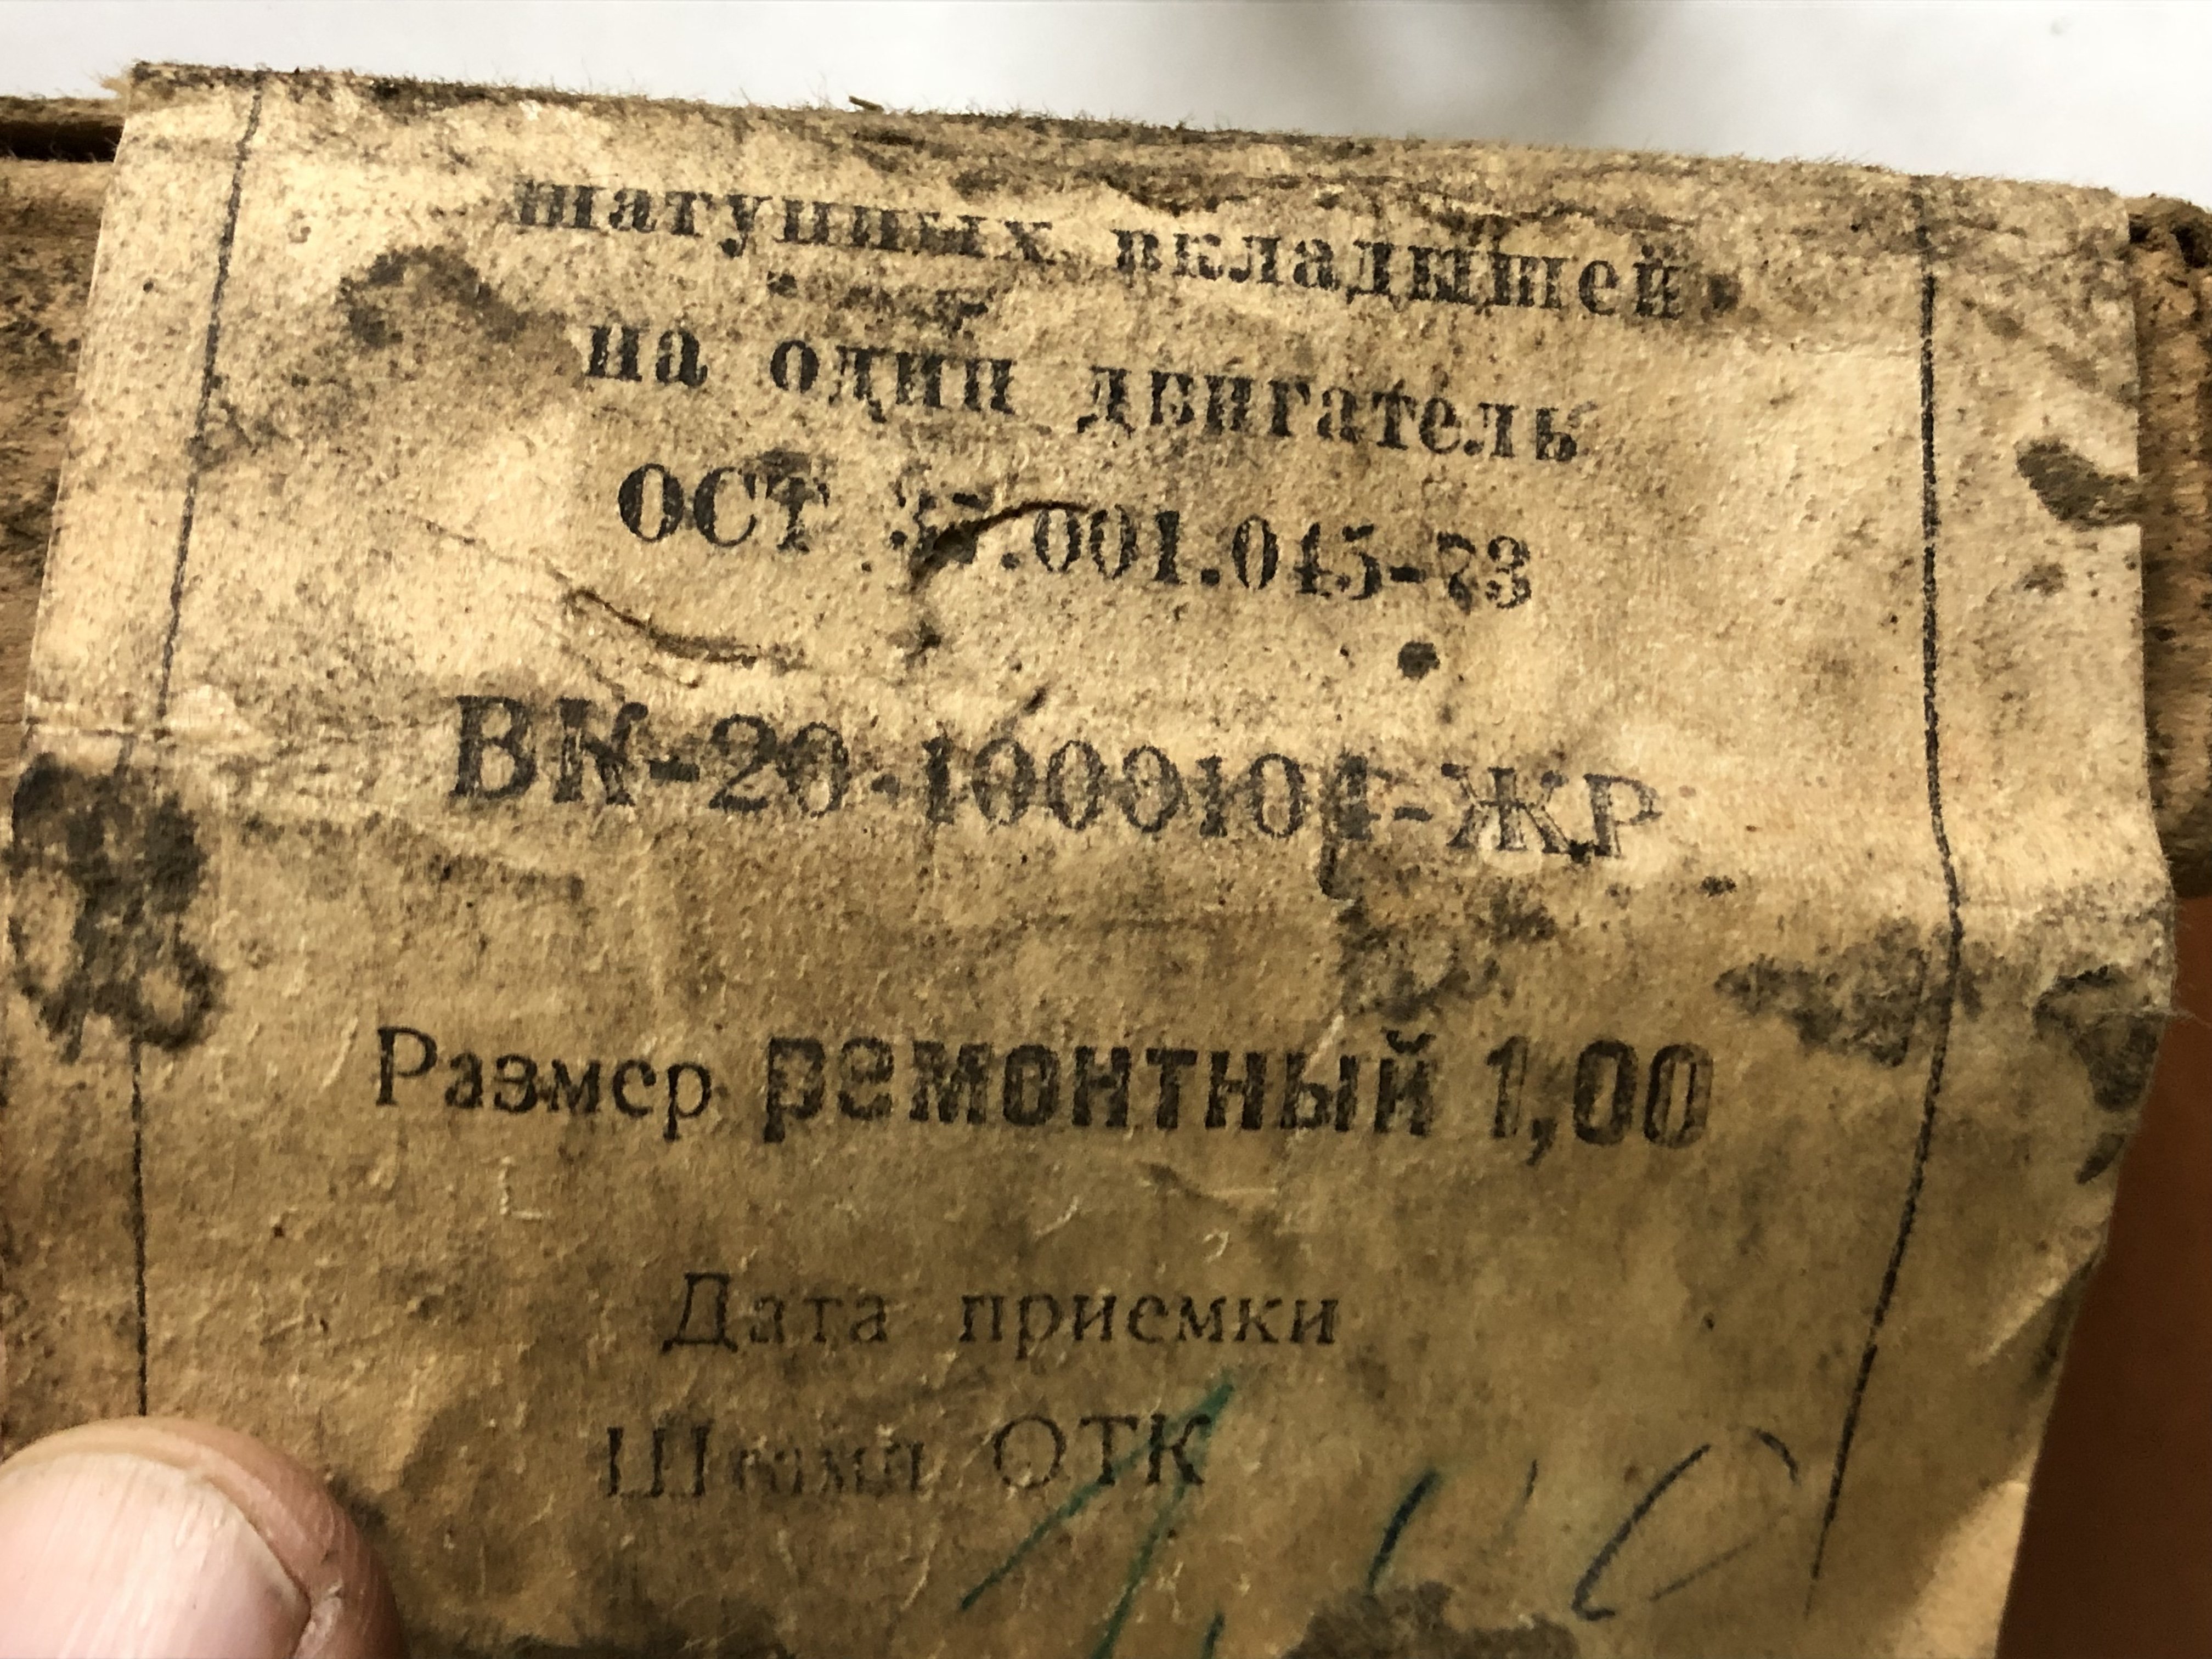 шатунных вкладышей
на один двигатель
ОСТ 37.001.045-73
ВК-20-1000104-ЖР
Размер ремонтный 1,00
Дата приемки
Штамп ОТК